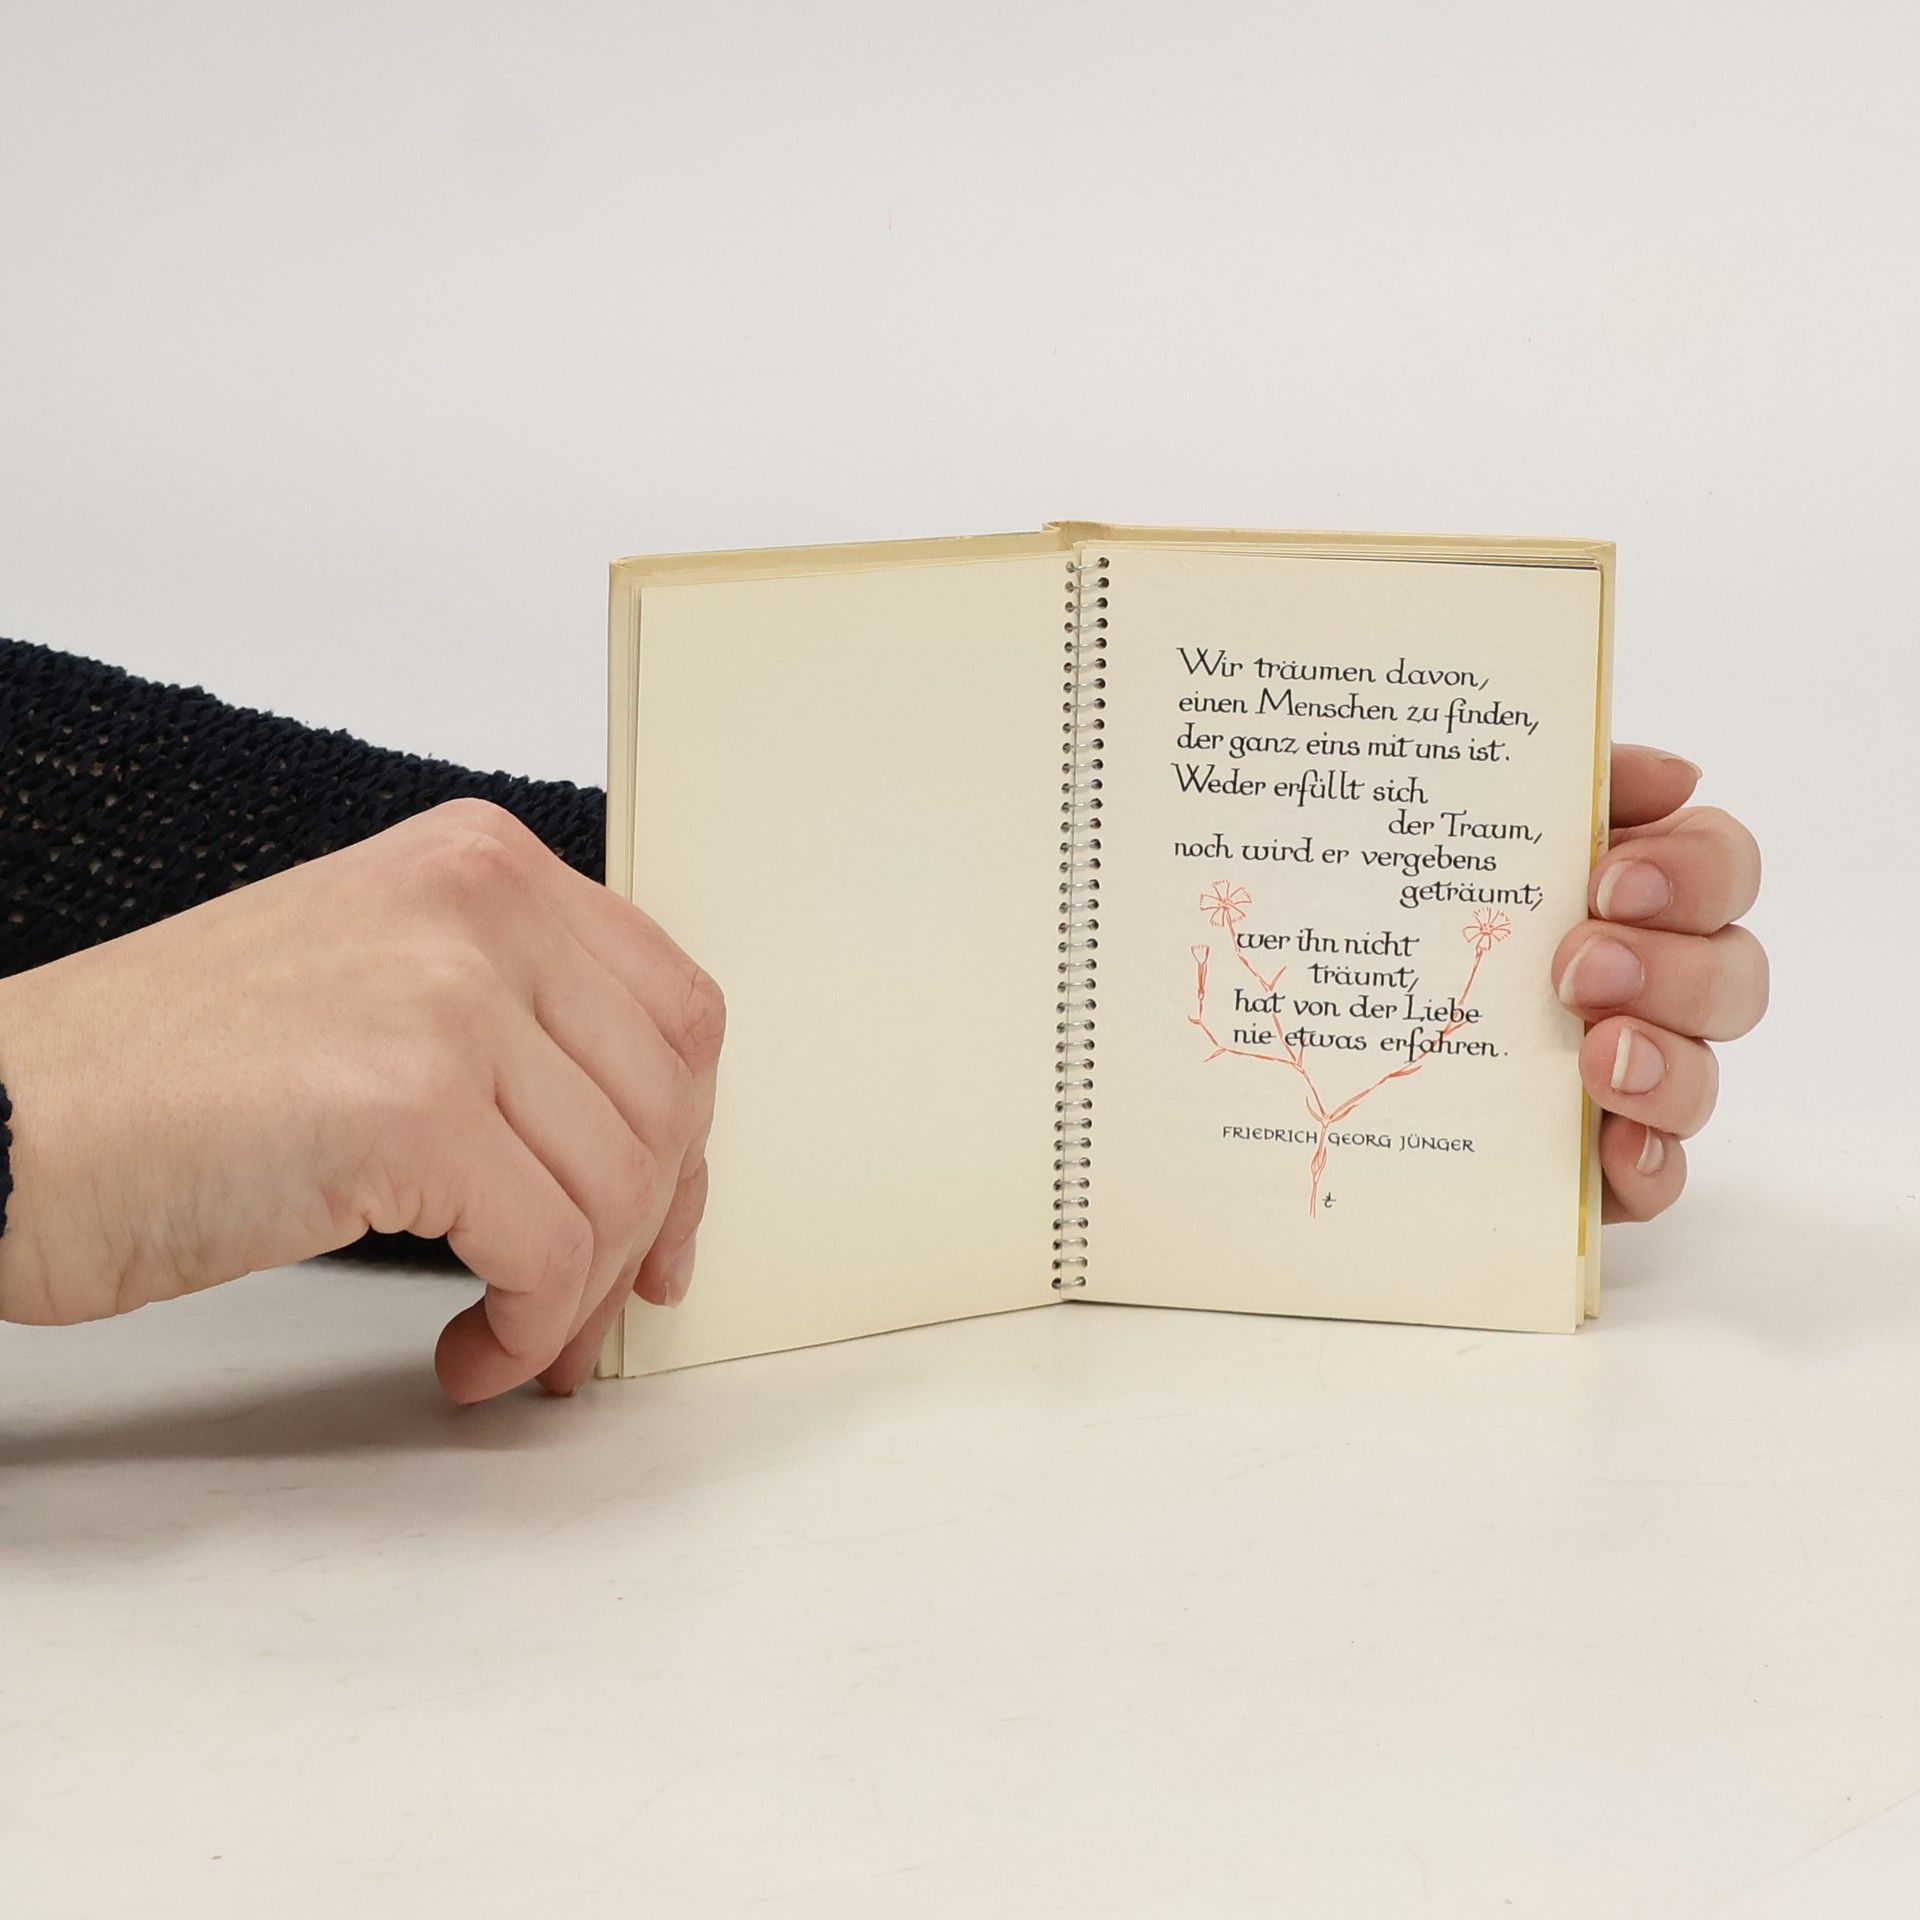 Wir träumen davon,
einen Menschen zu finden,
der ganz eins mit uns ist.
Weder erfüllt sich
der Traum,
noch wird er vergebens
geträumt;
wer ihn nicht
träumt,
hat von der Liebe
nie etwas erfahren.
FRIEDRICH GEORG JÜNGER